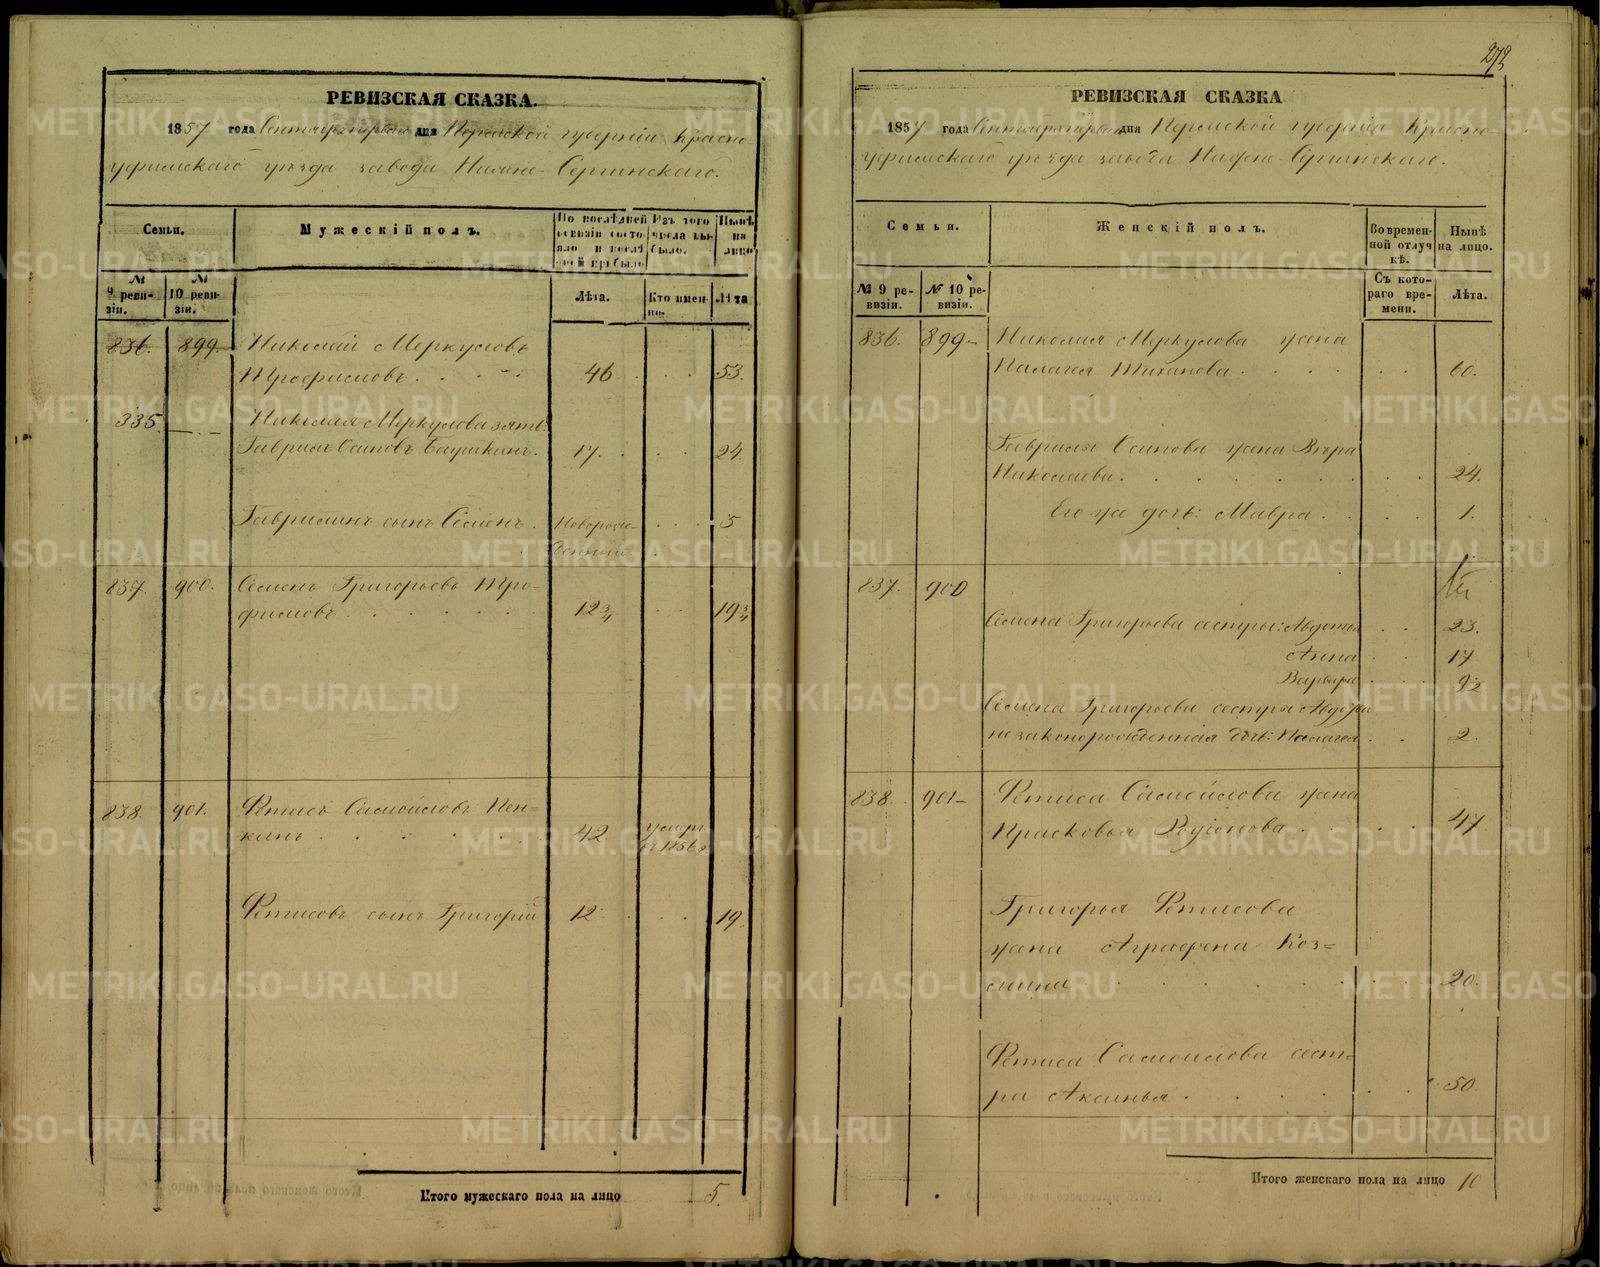 РЕВИЗСКАЯ СКАЗКА.
1857 года Сентября первый дня Пермской губерніи Красно-
уфимскаго уѣзда завода Нижне-Сергинскаго.
Семьи.
Мужескій полъ.
По послѣдней ревизіи состояло и послѣ оной прибыло
Изъ того числа выбыло.
Нынѣ на лицо
№ 9 ревизіи.
№ 10 ревизіи.
Лѣта.
Кто именно.
Лѣта
836. 899. Николай Меркуловъ
Трофимовъ . . . . 46 . . . 53.
335. Николая Меркулова зять:
Гаврилъ Осиповъ 17. . . . 24
Гаврилинъ сынъ Семенъ . Новорож- . . . 5
денный
837. 900. Семенъ Григорьевъ Тро-
фимовъ . . . . . . 12 3/4 . . 19 3/4
838. 901. Фетисъ Самойловъ Пен-
кинъ . . . . . . 42 умеръ
въ 1856 г
Фетисовъ сынъ Григорій 12 . . . 19.
Итого мужескаго пола на лицо 5.
272
РЕВИЗСКАЯ СКАЗКА
1857 года Сентября первый дня Пермской губерніи Красно-
уфимскаго уѣзда завода Нижне-Сергинскаго.
Семьи.
Женскій полъ.
Во временной отлучкѣ.
Нынѣ на лицо.
№ 9 ревизіи.
№ 10 ревизіи.
Съ котораго времени.
Лѣта.
836. 899 Николая Меркулова жена
Палагея Тиханова . . . . . . 60.
Гаврила Осипова жена Вѣра
Николаева . . . . . . . . 24.
Его же дочь: Мавра . . . . 1.
837. 900
Семена Григорьева сестры: Авдотья . . 23.
Анна . . 17
Варвара . . 9 1/2
Семена Григорьева сестры Авдотьи
незаконорожденная дочь: Палагея . . 2.
838. 901 Фетиса Самойлова жена
Прасковья Родіонова . . . . 47
Григорья Фетисова
жена Аграфена Коз-
мина . . . . . . . . 20.
Фетиса Самойлова сест-
ра Аксинья . . . . . . 50
Итого женскаго пола на лицо 10
METRIKI.GASO-URAL.RU